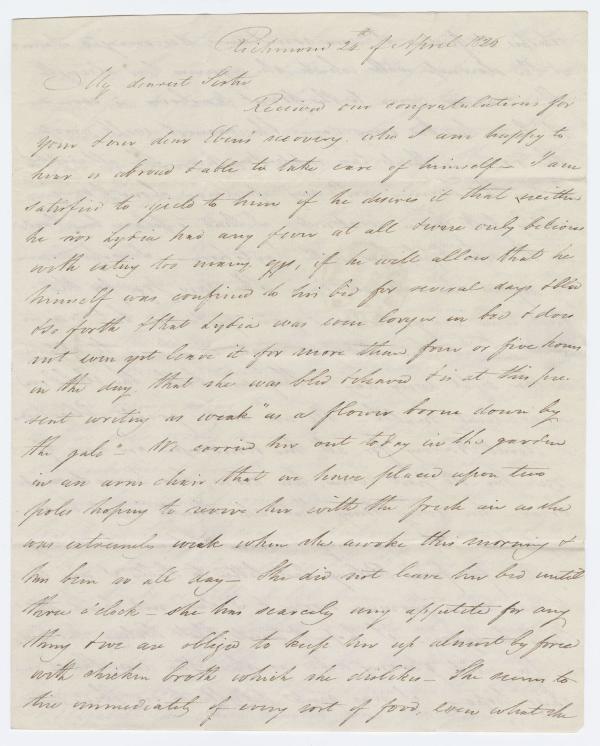 Richmond 24th of April 1826
My dearest Sister
Receive our congratulations for
your & our dear Eben's recovery, who I am happy to
hear is abroad & able to take care of himself — I am
satisfied to yield to him if he desires it that neither
he nor Lydia had any fever at all & were only bilious
with eating too many eggs, if he will allow that he
himself was confined to his bed for several days & bled
& so forth & that Lydia was even longer in bed & does
not even yet leave it for more than four or five hours
in the day, that she was bled & & is at this pre-
sent writing as weak "as a flower borne down by
the gale" — We carried her out to day in the garden
in an arm chair that we have placed upon two
poles hoping to revive her with the fresh air as she
was extremely weak when she awoke this morning &
has been so all day — She did not leave her bed until
three o'clock — she has scarcely any appetite for any
thing & we are obliged to keep her up almost by force
with chicken broth which she dislikes — She seems to
tire immediately of every sort of food, even what she